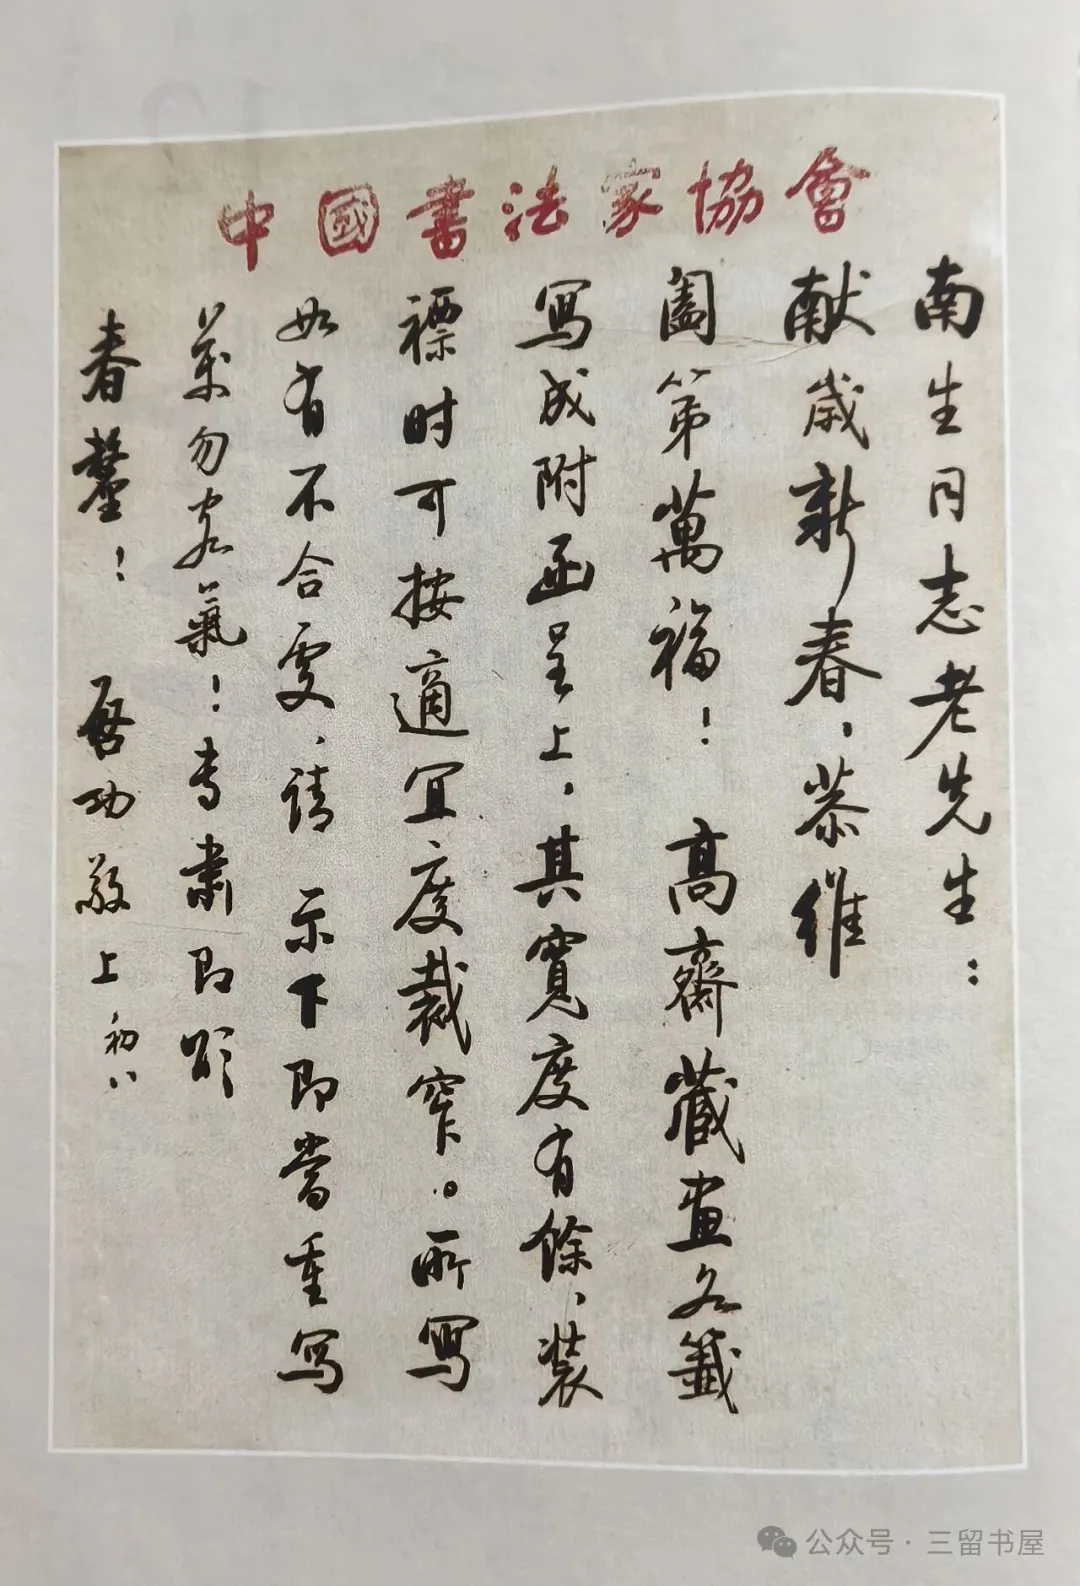 中國書法家協會
南生同志老先生：
献歲新春，恭維
闔第萬福！高齋藏畫各籤
寫成附函呈上，其寬度有餘，裝
褾时可按適宜度裁窄。所寫
如有不合處，请示下即當重寫
萬勿客氣！专肅即頌
春釐！啓功敬上 初八
公众号·三留书屋